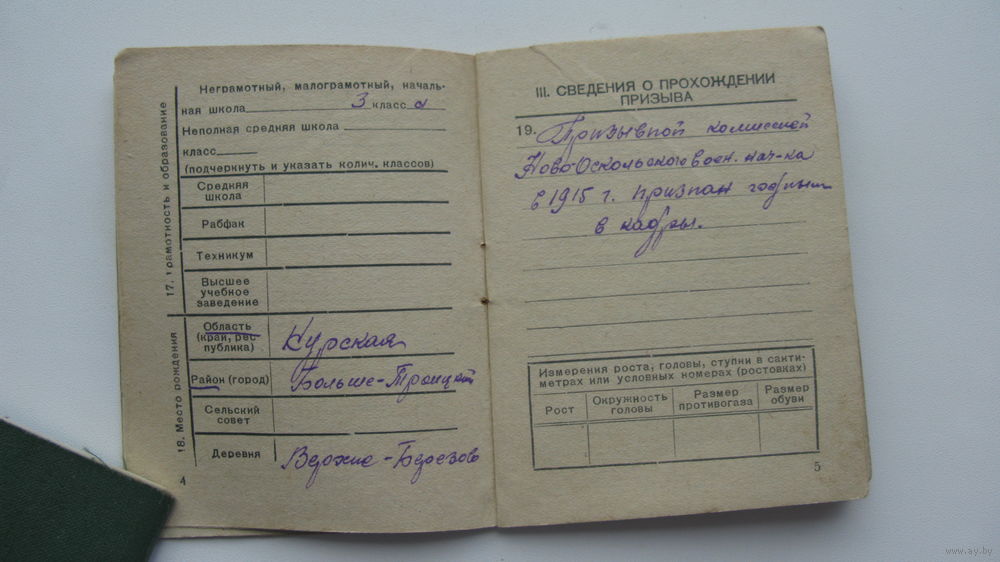 17. Грамотность и образование
Неграмотный, малограмотный, началь-
ная школа 3 класса
Неполная средняя школа
класс
(подчеркнуть и указать колич. классов)
Средняя
школа
Рабфак
Техникум
Высшее
учебное
заведение
18. Место рождения
Область
(край, рес-
публика)
Курская
Район (город)
Больше-Троицкий
Сельский
совет
Деревня
Верхне-Березово
4
III. СВЕДЕНИЯ О ПРОХОЖДЕНИИ
ПРИЗЫВА
19. Призывной комиссией
Ново-Оскольского воен. нач-ка
в 1915 г. признан годным
в кадры.
Измерения роста, головы, ступни в санти-
метрах или условных номерах (ростовках)
Рост
Окружность
головы
Размер
противогаза
Размер
обуви
5
www.ay.by